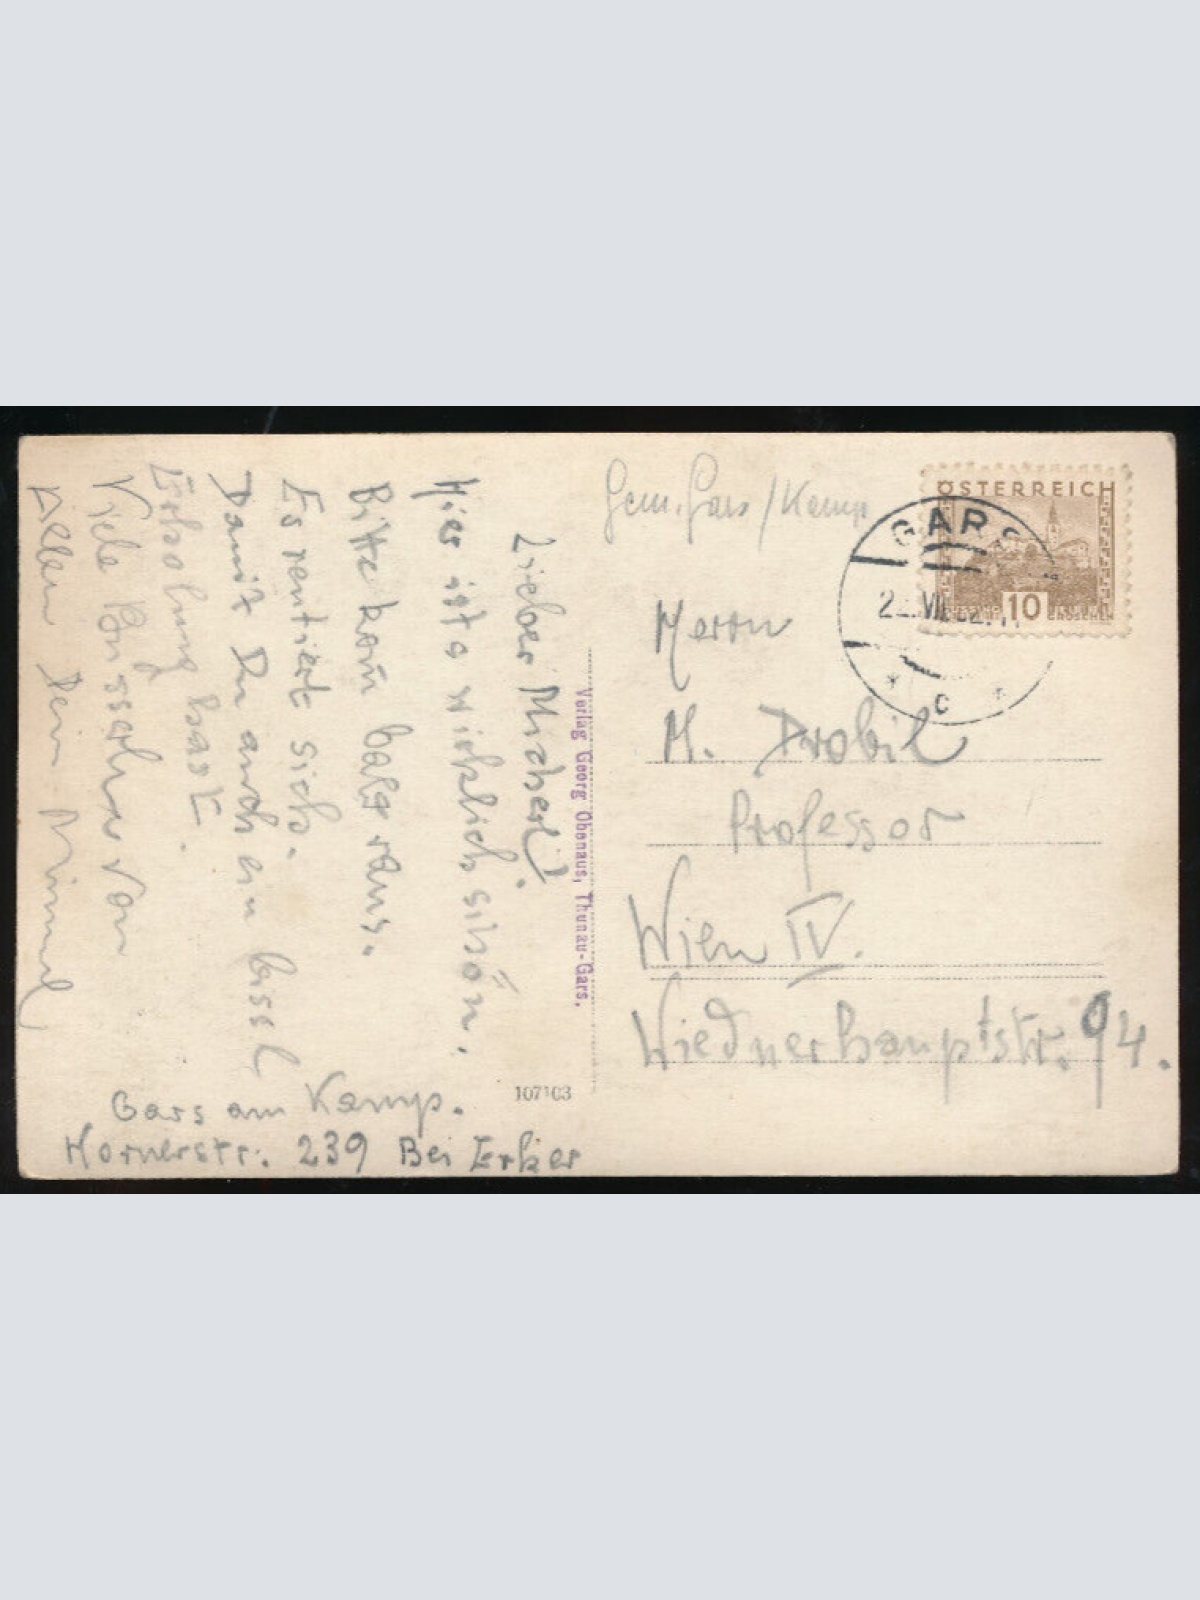 Lieber Micherl!
Hier ists wirklich schön.
Bitte kom̄ bald raus.
Es rentiert sich.
Damit Du auch ein bissl
Erholung hast.
Viele Busserln von
Allen Dein Mimmel
Gars am Kamp.
Hornerstr. 239 Bei Erker
Verlag Georg Obenaus, Thunau-Gars.
107103
Gem. Gars / Kamp
ÖSTERREICH
10
GROSCHEN
GARS
VII
* c *
Herrn
M. Drobil
Professor
Wien IV.
Wiednerhauptstr. 94.